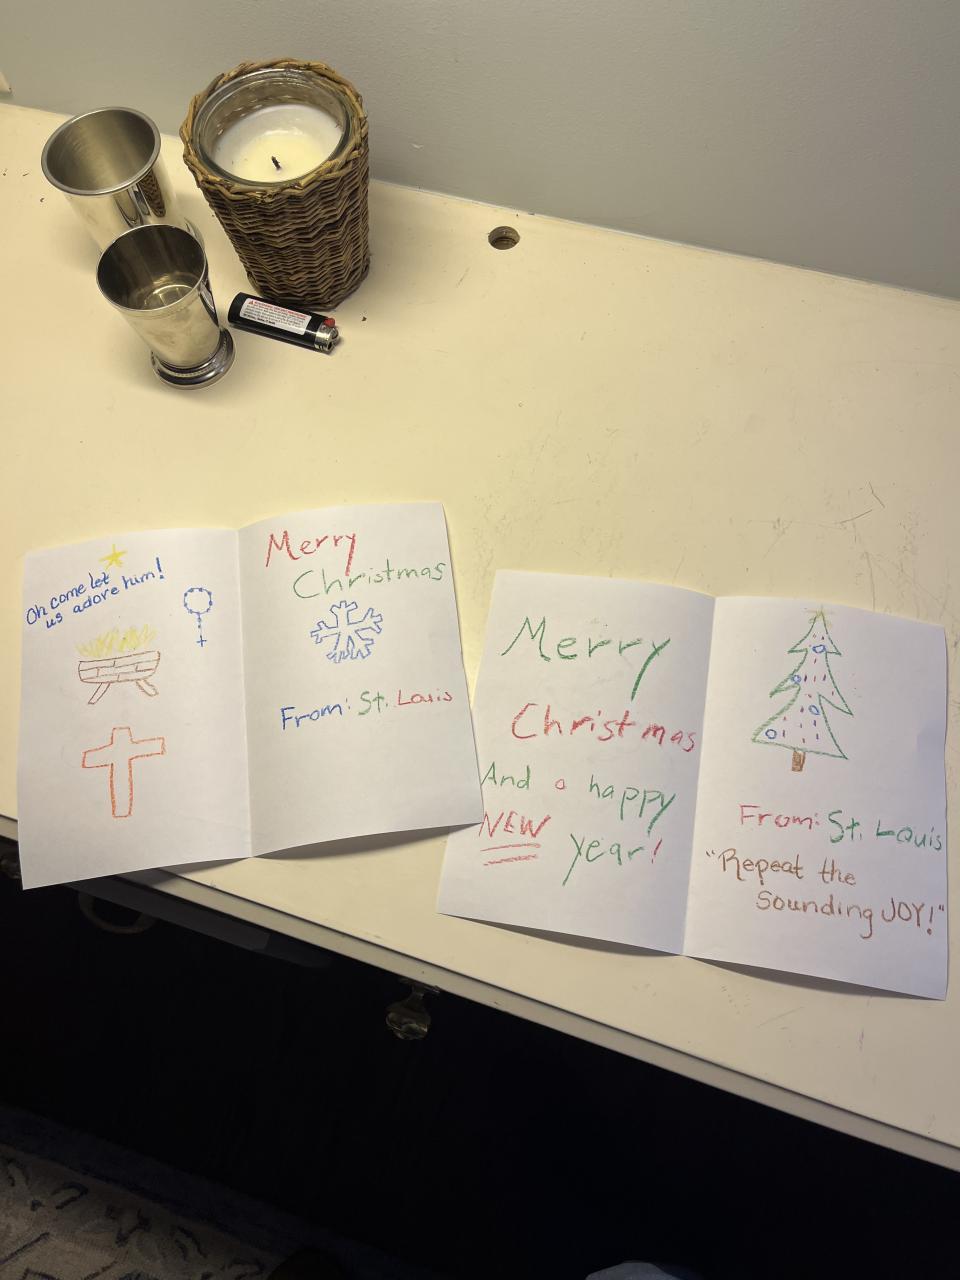 Oh come let
us adore him!
Merry
Christmas
From: St. Louis
Merry
Christmas
And a happy
NEW
year!
From: St. Louis
"Repeat the
sounding JOY!"